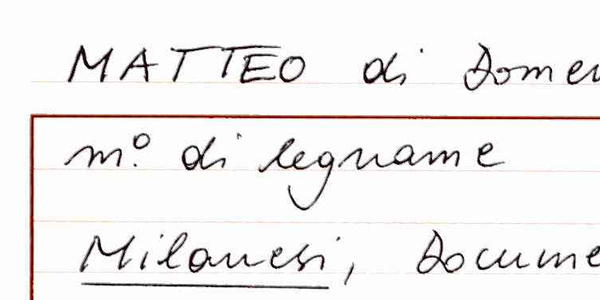 MATTEO di Domen
m.º di legname
Milanesi, Docume